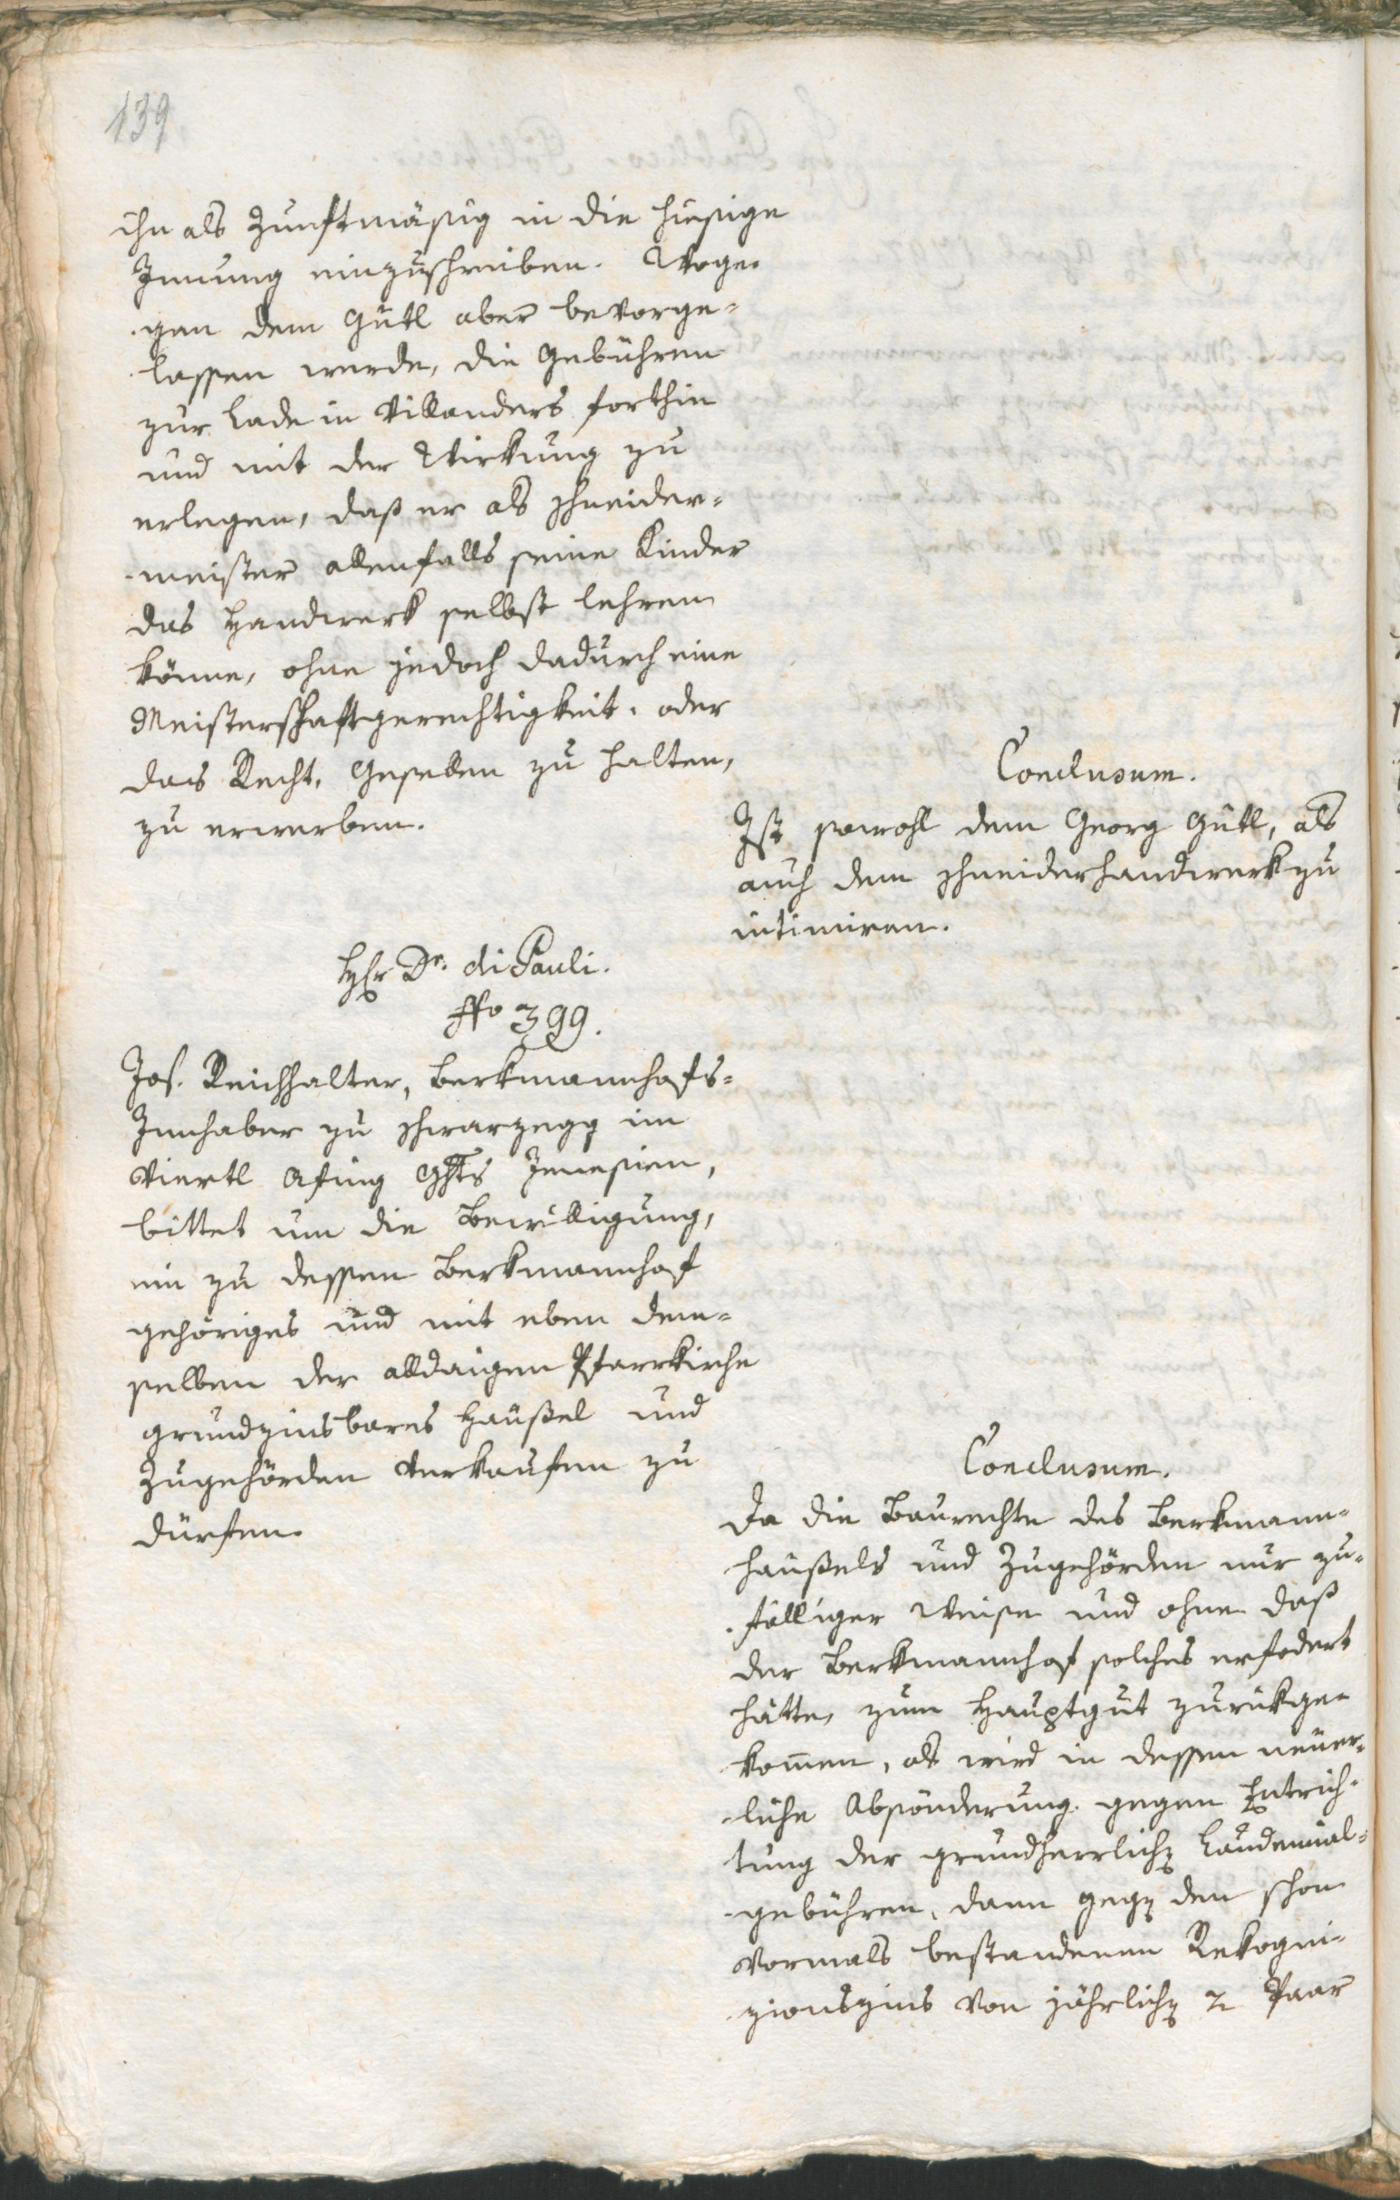 139
ihn als Zunftmäßig in die hiesige
Innung einzuschreiben. Woge-
gen dem Gütl aber bevorge-
lassen werde, die Gebühren
zur Lade in Villanders forthin
und mit der Wirkung zu
erlegen, daß er als Schneider-
meister allenfalls seine Kinder
das Handwerk selbst lehren
könne, ohne jedoch dadurch eine
Meisterschaftgerechtigkeit, oder
das Recht, Gesellen zu halten,
zu erwerben.
Conclusum.
Ist sowohl dem Georg Gütl, als
auch dem Schneiderhandwerk zu
intimiren.
Hr Dr. di Pauli.
No 399.
Jos. Reichhalter, Berkmannhofs-
Innhaber zu Schwarzegg im
Viertl Afing Ghts Jenesien,
bittet um die Bewilligung,
ein zu dessen Berkmannhof
gehöriges und mit eben dem-
selben der alldaigen Pfarrkirche
grundzinsbares Häußel und
Zugehörden verkaufen zu
dürfen.
Conclusum.
Da die Baurechte des Berkmann-
häußels und Zugehörden nur zu-
fälliger Weise und ohne daß
der Berkmannhof solches erfodert
hätte, zum Hauptgut zurükge-
kom̅en, als wird in dessen neuer-
liche Absönderung gegen Entrich-
tung der grundherrlichen Laudemial-
gebühren, dann gegen den schon
vormals bestandenen Rekogni-
zionszins von jährlichen 2 Paar